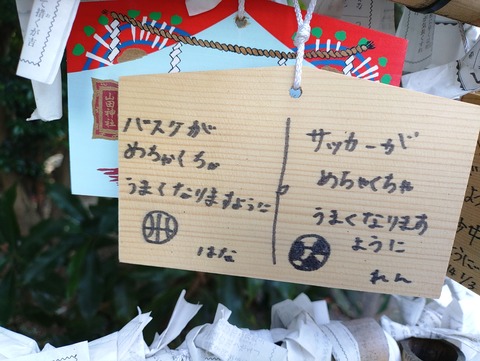 山田神社
バスケが
めちゃくちゃ
うまくなりますように
はな
サッカーが
めちゃくちゃ
うまくなります
ように
れん